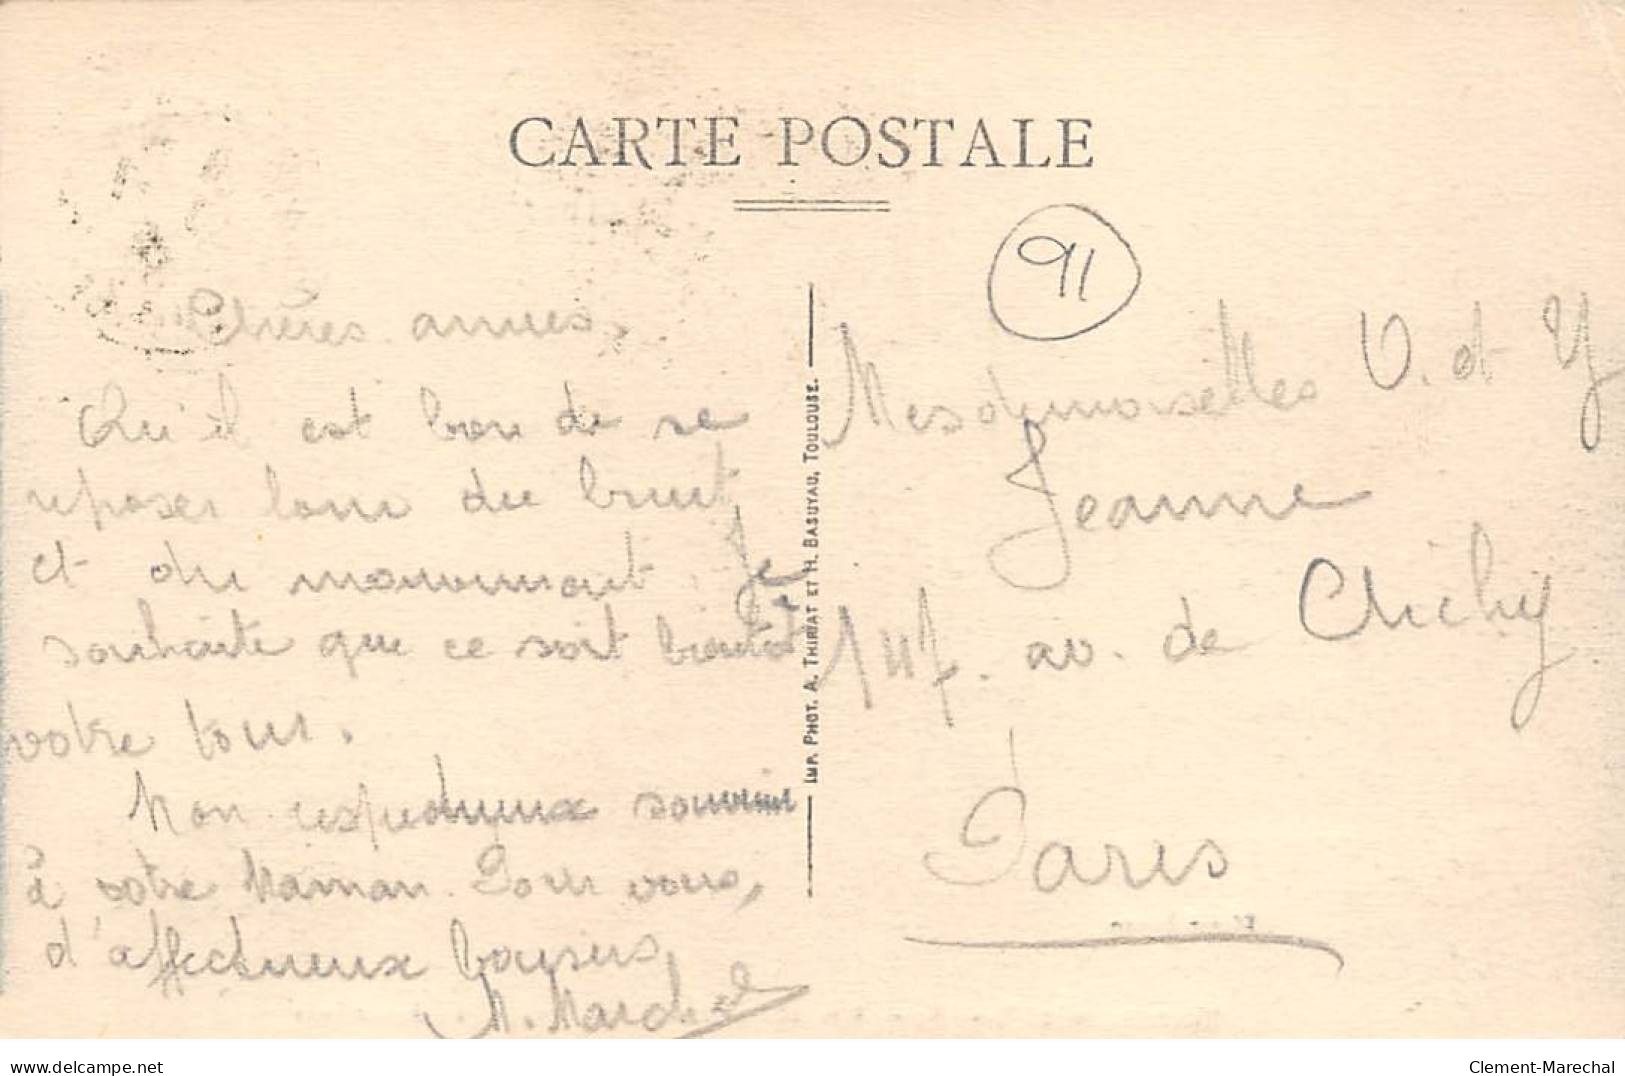 CARTE POSTALE
91
Chères amies,
Qu'il est bon de se
reposer loin du bruit
et du mouvement. Je
souhaite que ce soit bientôt
votre tour.
Mon respectueux souvenir
à votre Maman. Pour vous,
d'affectueux baisers
M. Marchal
IMP. PHOT. A. THIRIAT ET H. BASUYAU, TOULOUSE.
Mesdemoiselles V. et Y
Jeanne
147. av. de Clichy
Paris
www.delcampe.net
Clement-Marechal